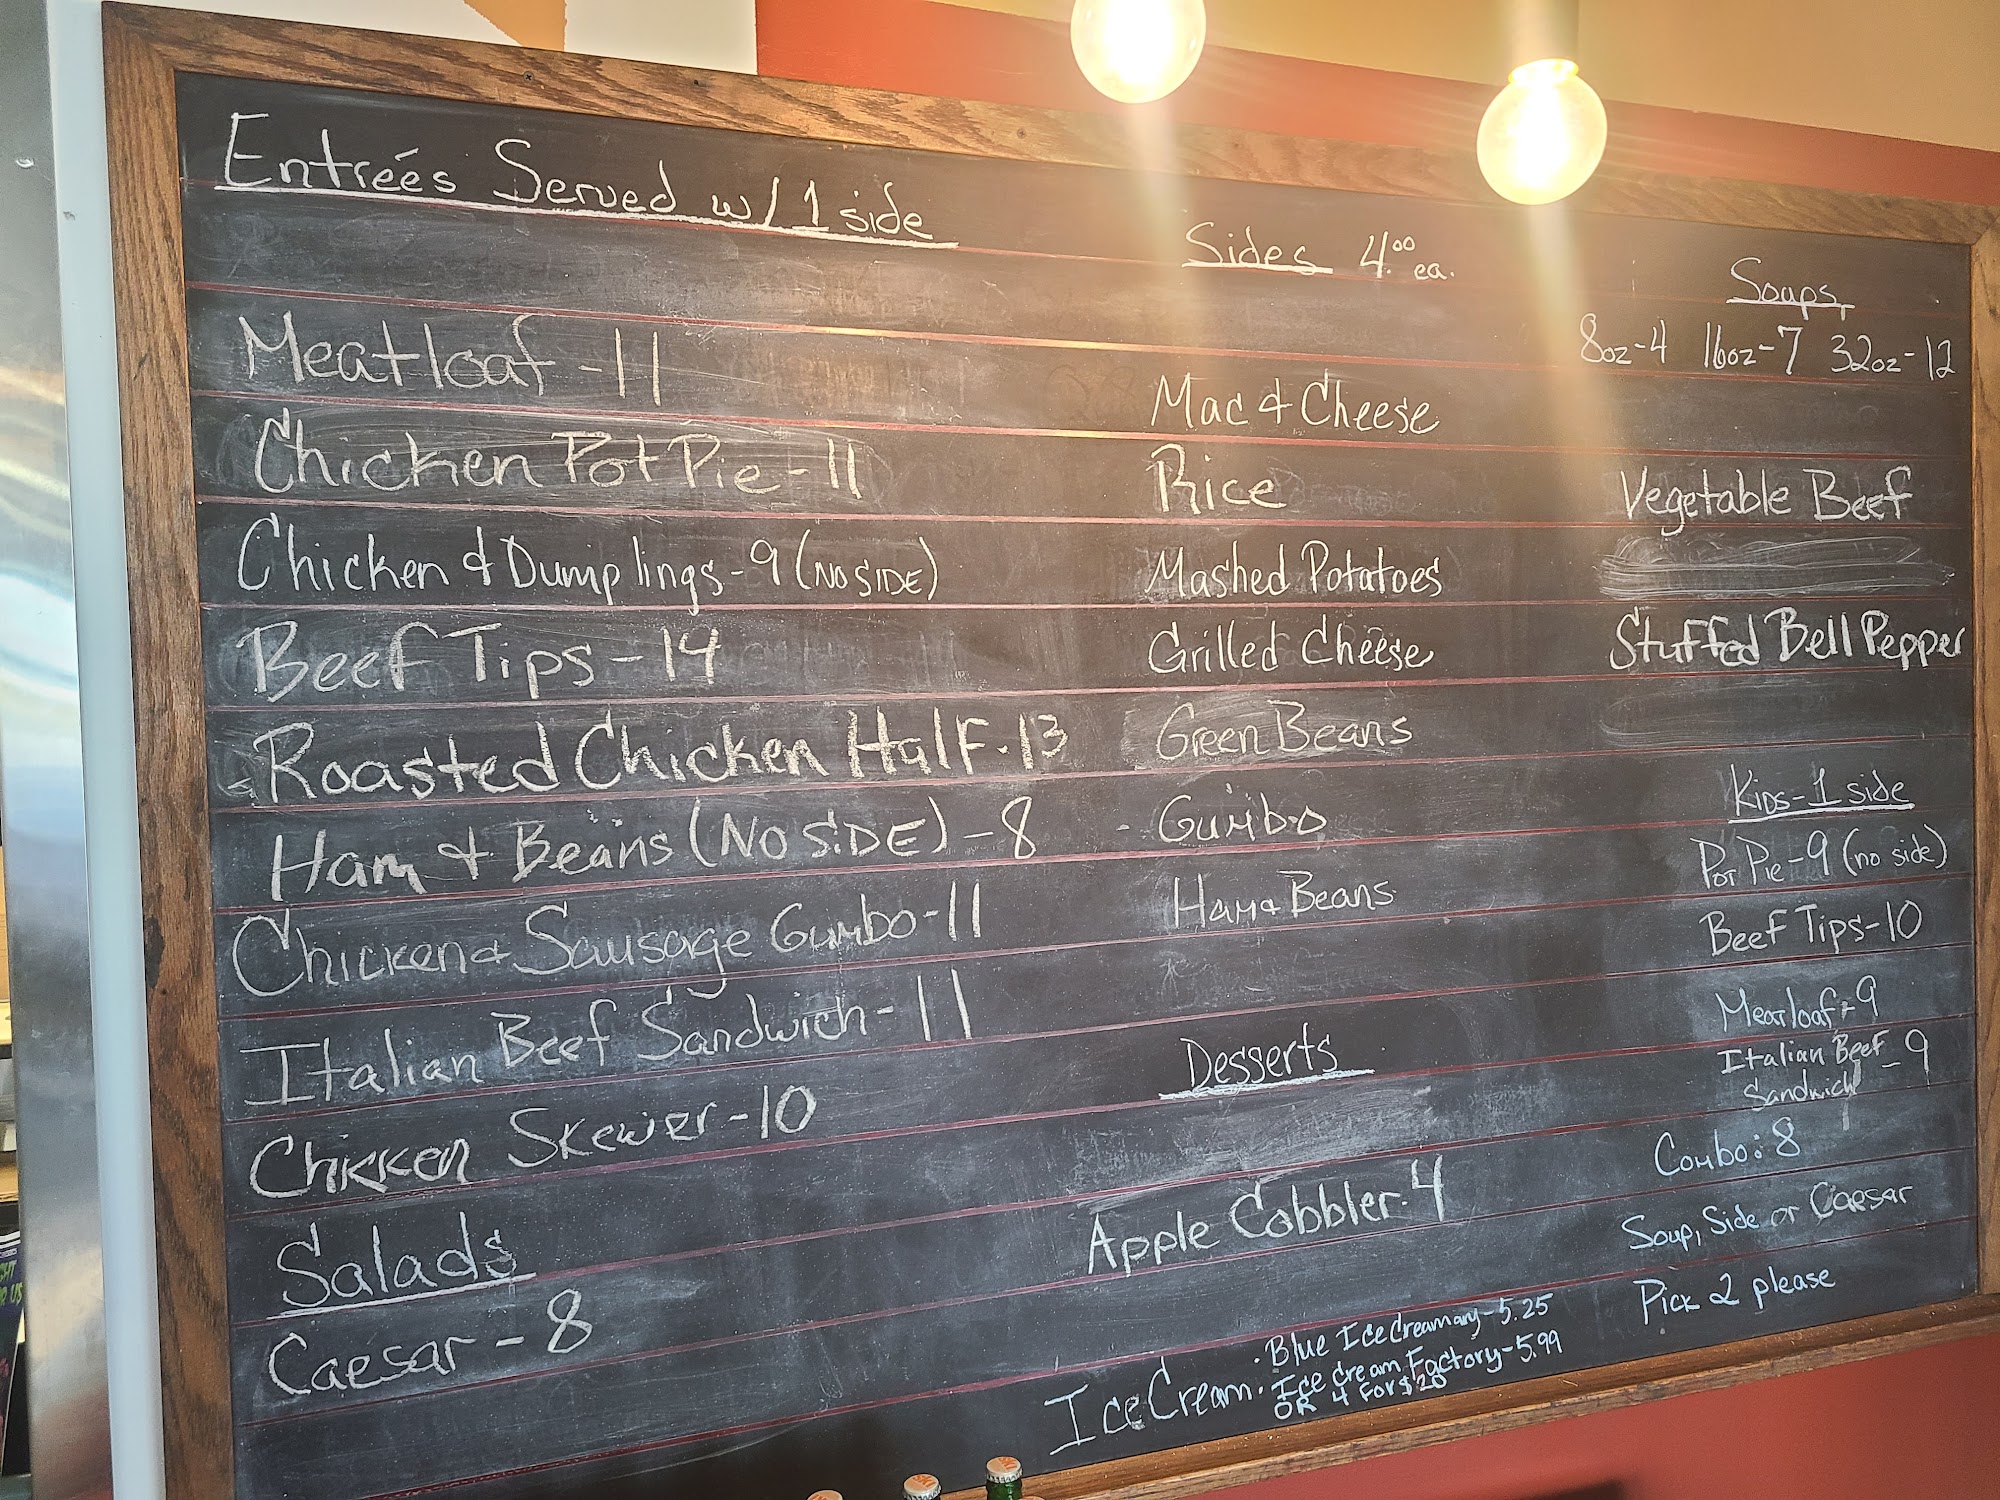 Entrées Served w/ 1 side
Meatloaf - 11
Chicken Pot Pie - 11
Chicken & Dumplings - 9 (NO SIDE)
Beef Tips - 14
Roasted Chicken Half - 13
Ham & Beans (NO SIDE) - 8
Chicken & Sausage Gumbo - 11
Italian Beef Sandwich - 11
Chicken Skewer - 10
Salads
Caesar - 8
Sides 4.00 ea.
Mac & Cheese
Rice
Mashed Potatoes
Grilled Cheese
Green Beans
- Gumbo
Ham & Beans
Desserts
Apple Cobbler - 4
Ice Cream
· Blue Ice Creamary - 5.25
· Ice Cream Factory - 5.99
OR 4 FOR $20
Soups
8oz - 4 16oz - 7 32oz - 12
Vegetable Beef
Stuffed Bell Pepper
Kids - 1 side
Pot Pie - 9 (no side)
Beef Tips - 10
Meatloaf - 9
Italian Beef - 9
Sandwich
Combo: 8
Soup, Side or Caesar
Pick 2 please